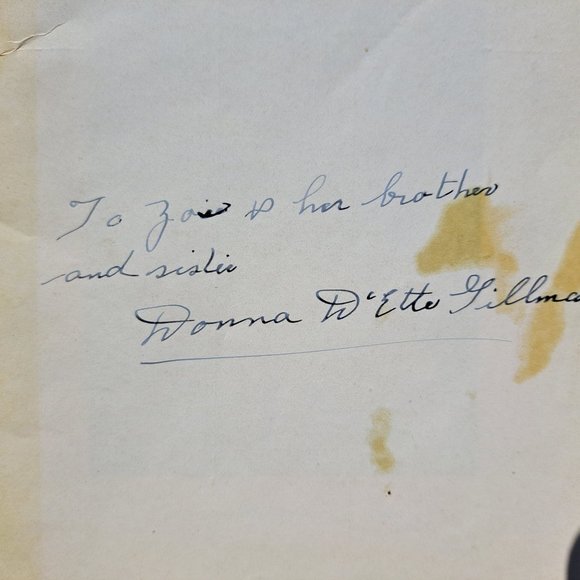 To Zoie & her brother
and sister
Donna D'Ette Gillma